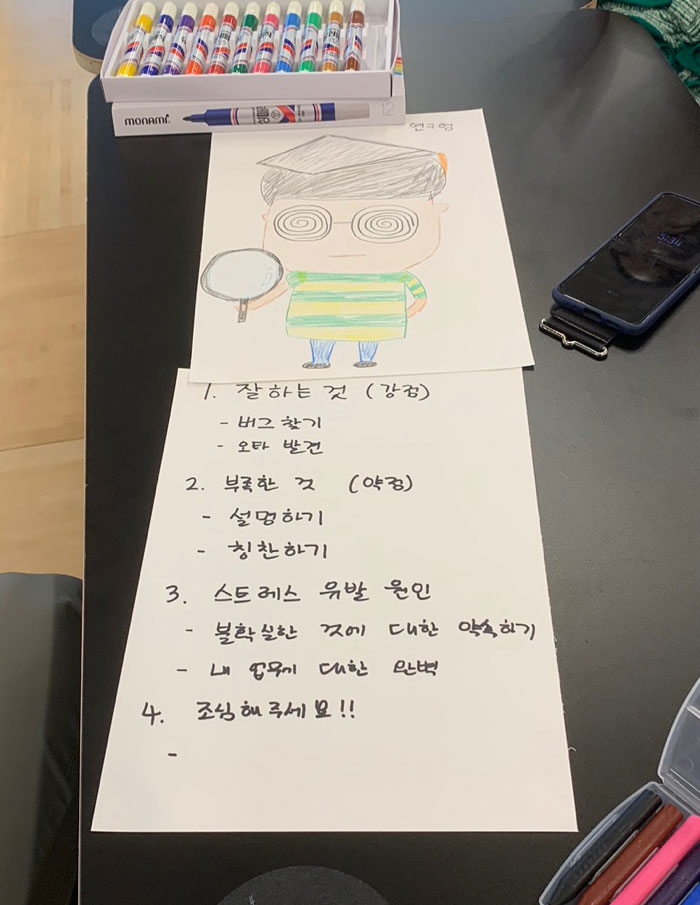 monami
12
연구형
5:34
1. 잘하는 것 (강점)
- 버그 찾기
- 오타 발견
2. 부족한 것 (약점)
- 설명하기
- 칭찬하기
3. 스트레스 유발 원인
- 불확실한 것에 대한 약속하기
- 내 업무에 대한 완벽
4. 조심해주세요!!
-